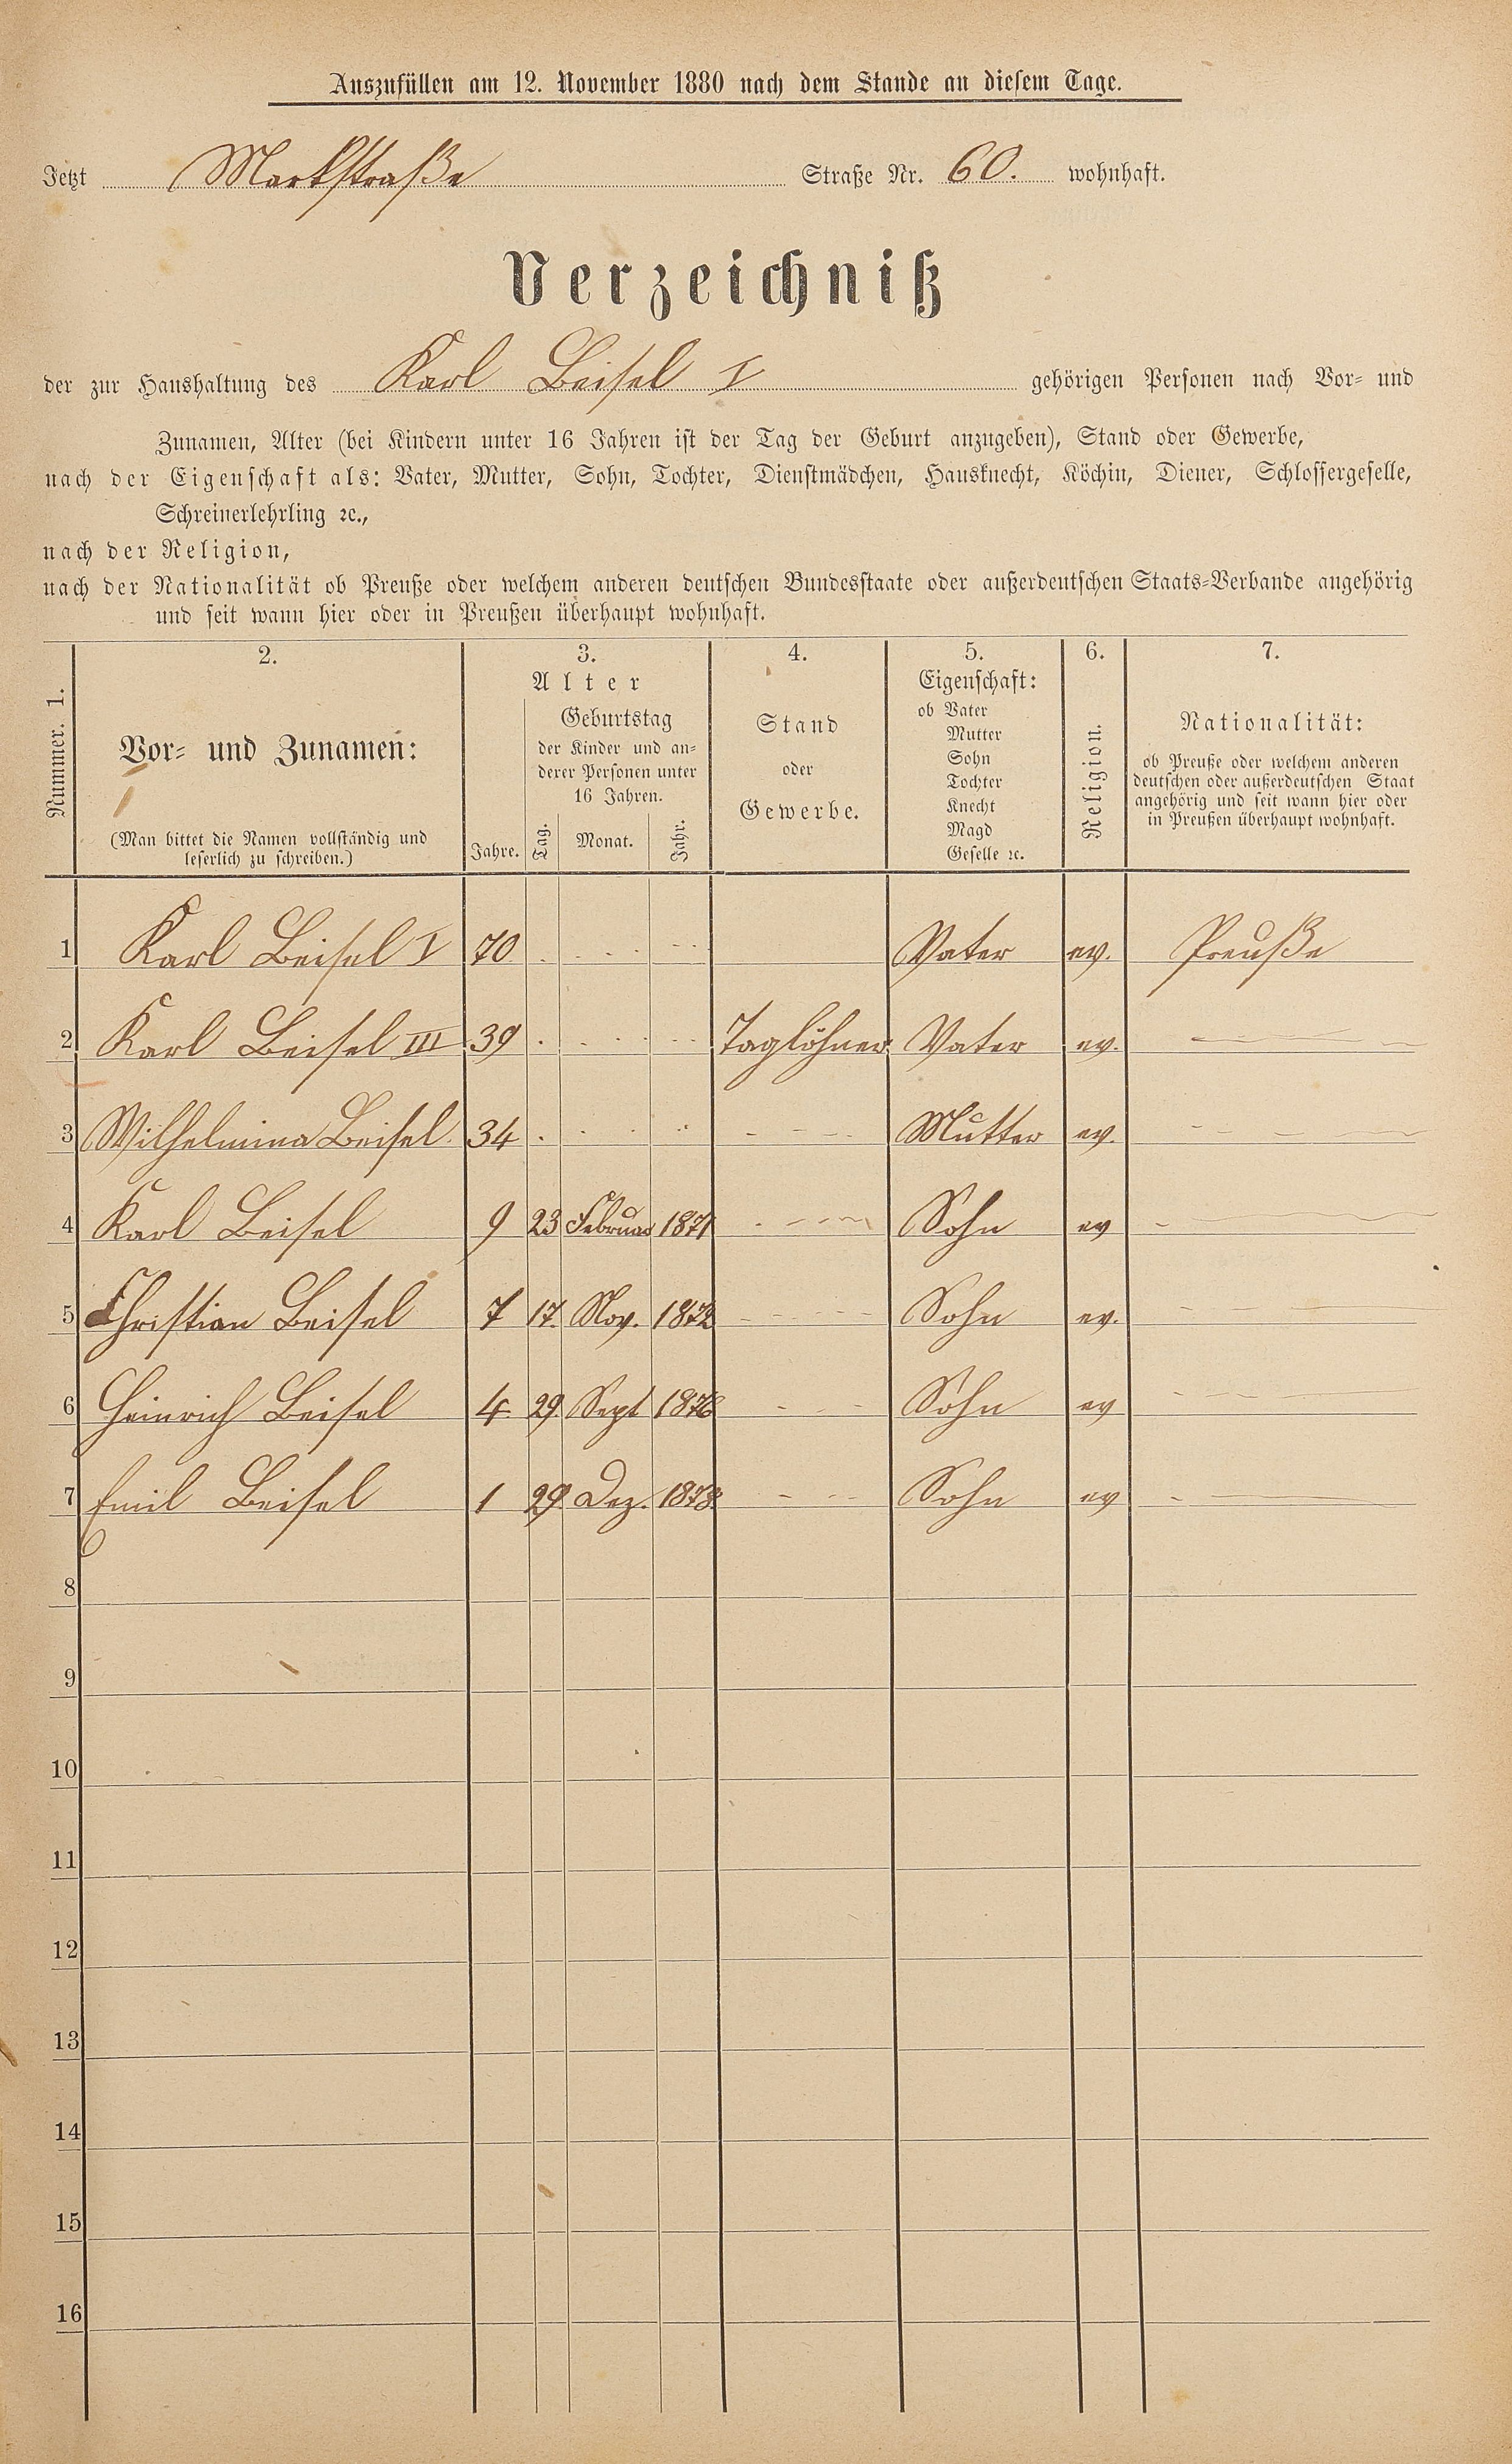 Auszufüllen am 12. November 1880 nach dem Stande an diesem Tage.
Jetzt Markstraße Straße Nr. 60. wohnhaft.
Verzeichniß
der zur Haushaltung des Karl Beisel I gehörigen Personen nach Vor- und
Zunamen, Alter (bei Kindern unter 16 Jahren ist der Tag der Geburt anzugeben), Stand oder Gewerbe,
nach der Eigenschaft als: Vater, Mutter, Sohn, Tochter, Dienstmädchen, Hausknecht, Köchin, Diener, Schlossergeselle,
Schreinerlehrling ꝛc.,
nach der Religion,
nach der Nationalität ob Preuße oder welchem anderen deutschen Bundesstaate oder außerdeutschen Staats-Verbande angehörig
und seit wann hier oder in Preußen überhaupt wohnhaft.
Nummer. 1.
2.
Vor- und Zunamen:
(Man bittet die Namen vollständig und
leserlich zu schreiben.)
3.
Alter
Jahre.
Geburtstag
der Kinder und an-
derer Personen unter
16 Jahren.
Tag. Monat. Jahr.
4.
Stand
oder
Gewerbe.
5.
Eigenschaft:
ob Vater
Mutter
Sohn
Tochter
Knecht
Magd
Geselle ꝛc.
6.
Religion.
7.
Nationalität:
ob Preuße oder welchem anderen
deutschen oder außerdeutschen Staat
angehörig und seit wann hier oder
in Preußen überhaupt wohnhaft.
1 Karl Beisel I 70 Vater ev. Preuße
2 Karl Beisel III 39 Taglöhner Vater ev.
3 Wilhelmina Beisel 34 Mutter ev.
4 Karl Beisel 9 23 Februar 1871 Sohn ev
5 Christian Beisel 7 17. Nov. 1872 Sohn ev.
6 Heinrich Beisel 4 29. Sept 1876 Sohn ev
7 Emil Beisel 1 29. Dez. 1878 Sohn ev
8
9
10
11
12
13
14
15
16